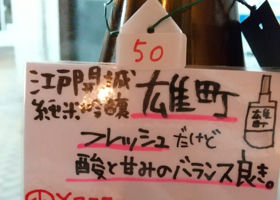 50
江戸開城
純米吟醸 雄町
雄町
フレッシュだけど
酸と甘みのバランス良き。